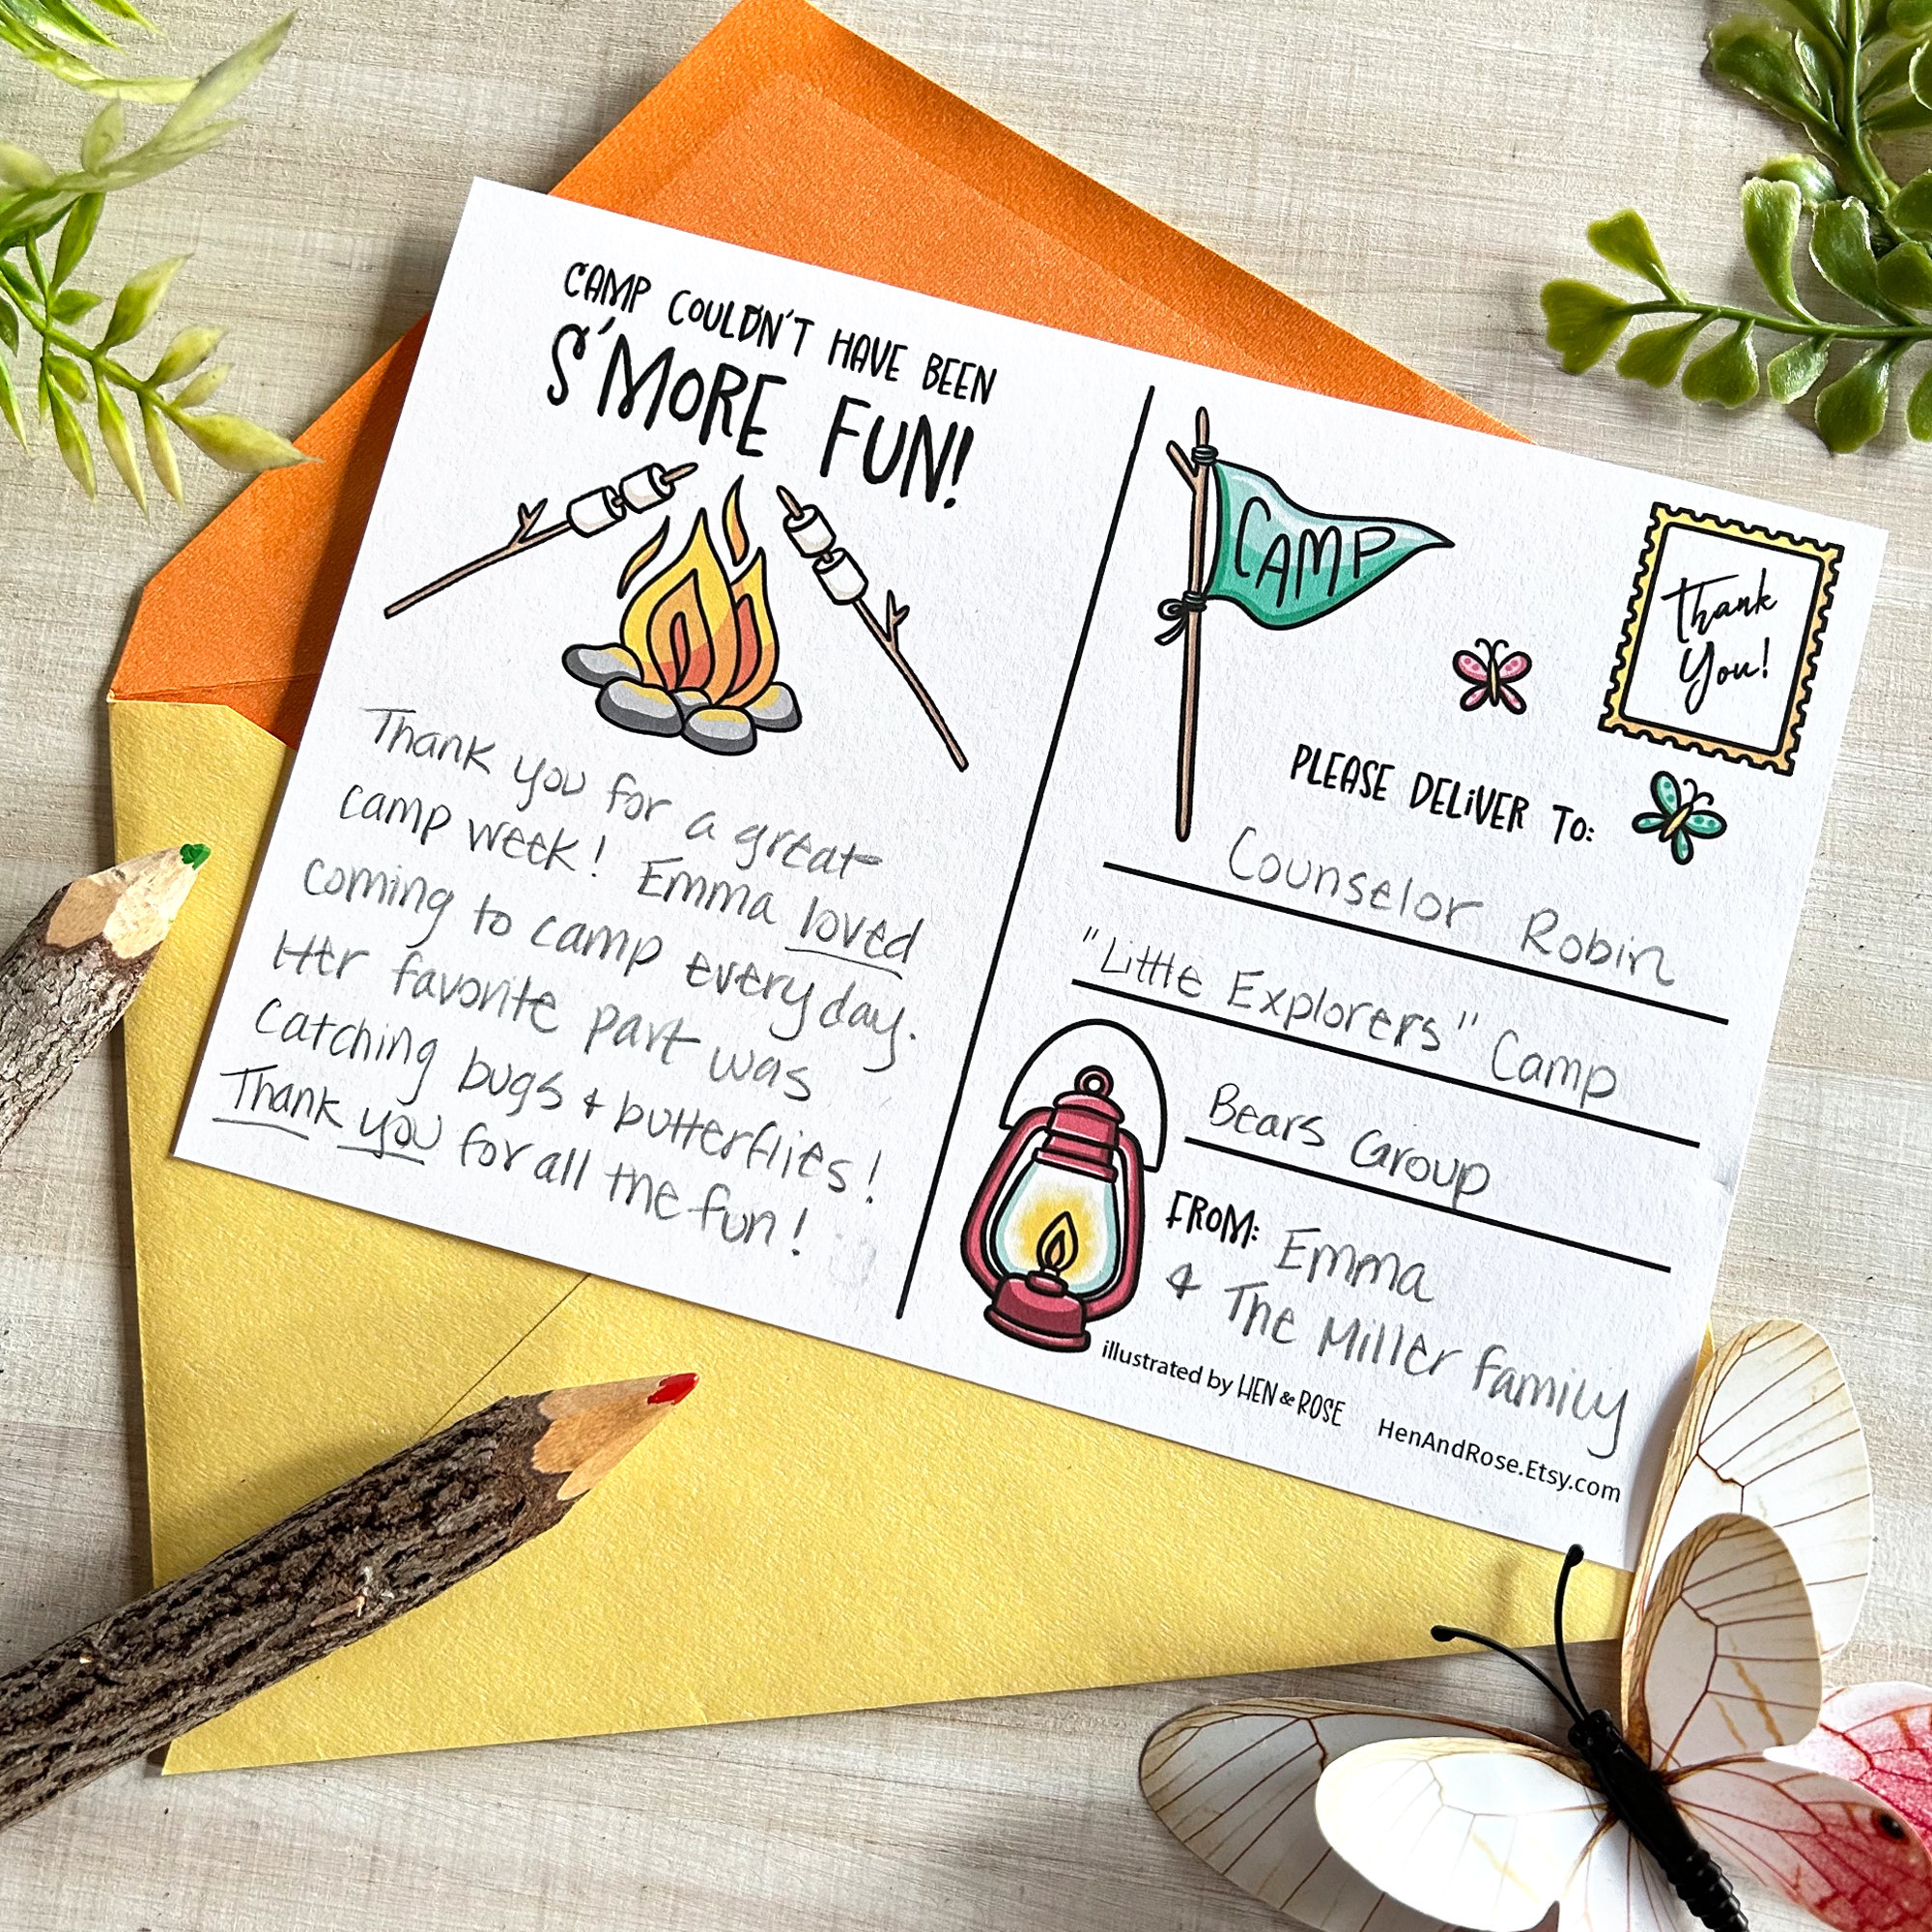 CAMP COULDN'T HAVE BEEN
S'MORE FUN!
Thank you for a great
camp week! Emma loved
coming to camp everyday.
Her favorite part was
Catching bugs & butterflies!
Thank you for all the fun!
CAMP
Thank
You!
PLEASE DELIVER TO:
Counselor Robin
"Little Explorers" Camp
Bears Group
FROM: Emma
& The Miller family
illustrated by HEN & ROSE HenAndRose.Etsy.com